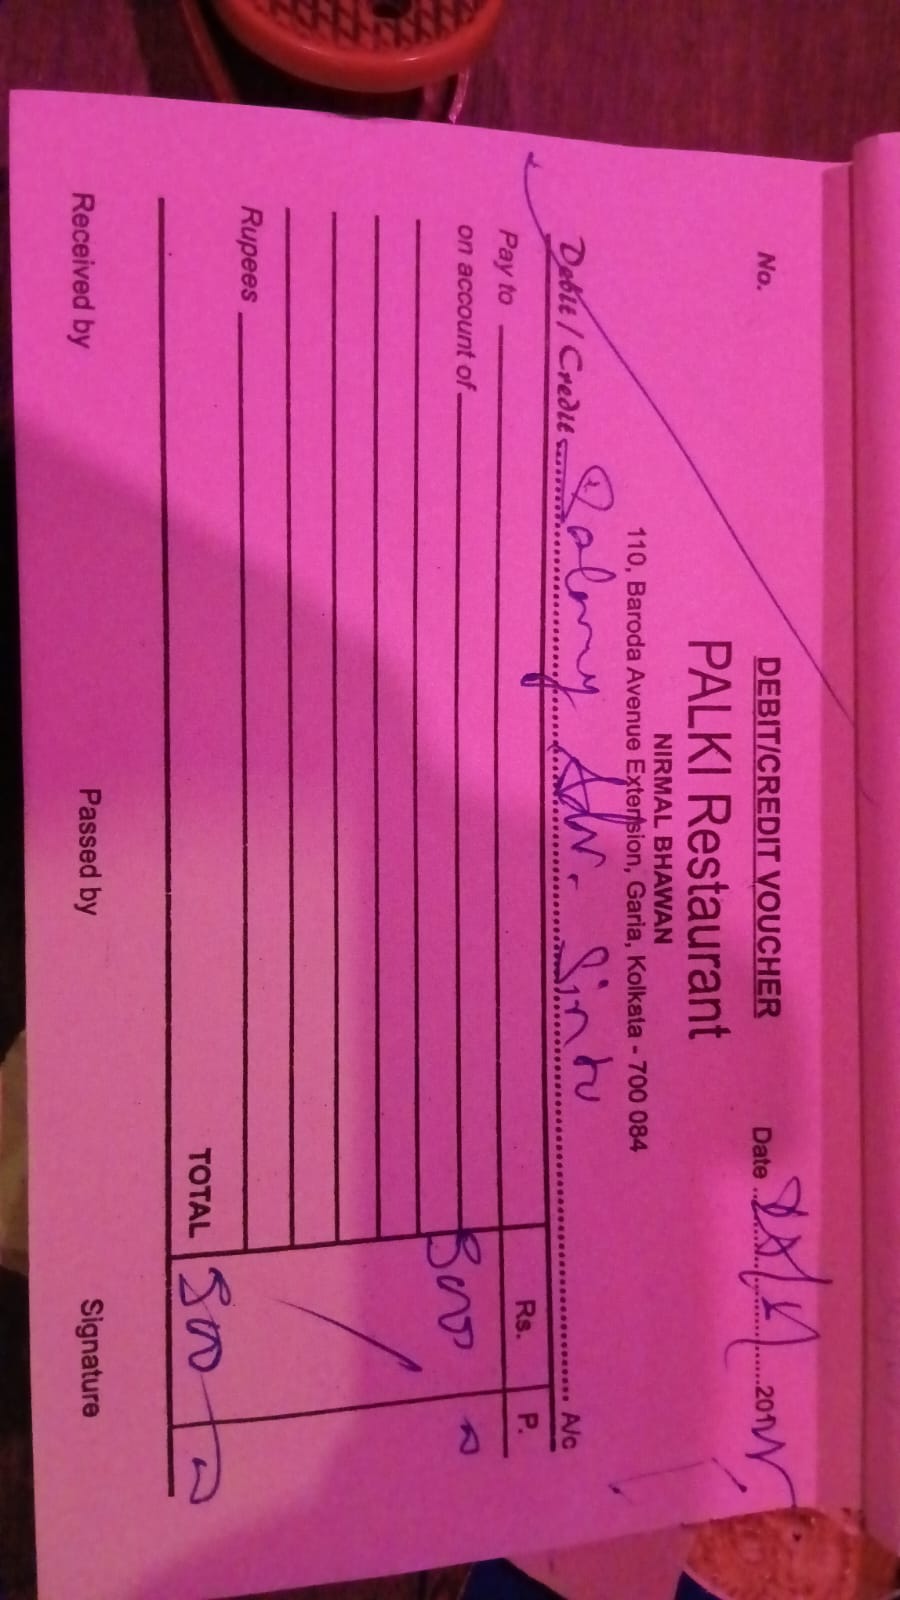 DEBIT/CREDIT VOUCHER
No.
PALKI Restaurant
Date
201
NIRMAL BHAWAN
110, Baroda Avenue Extension, Garia, Kolkata - 700 084
Debit / Credit Salary Adv. Sintu A/c
Pay to Rs. P.
on account of
Rupees
TOTAL
Received by Passed by Signature